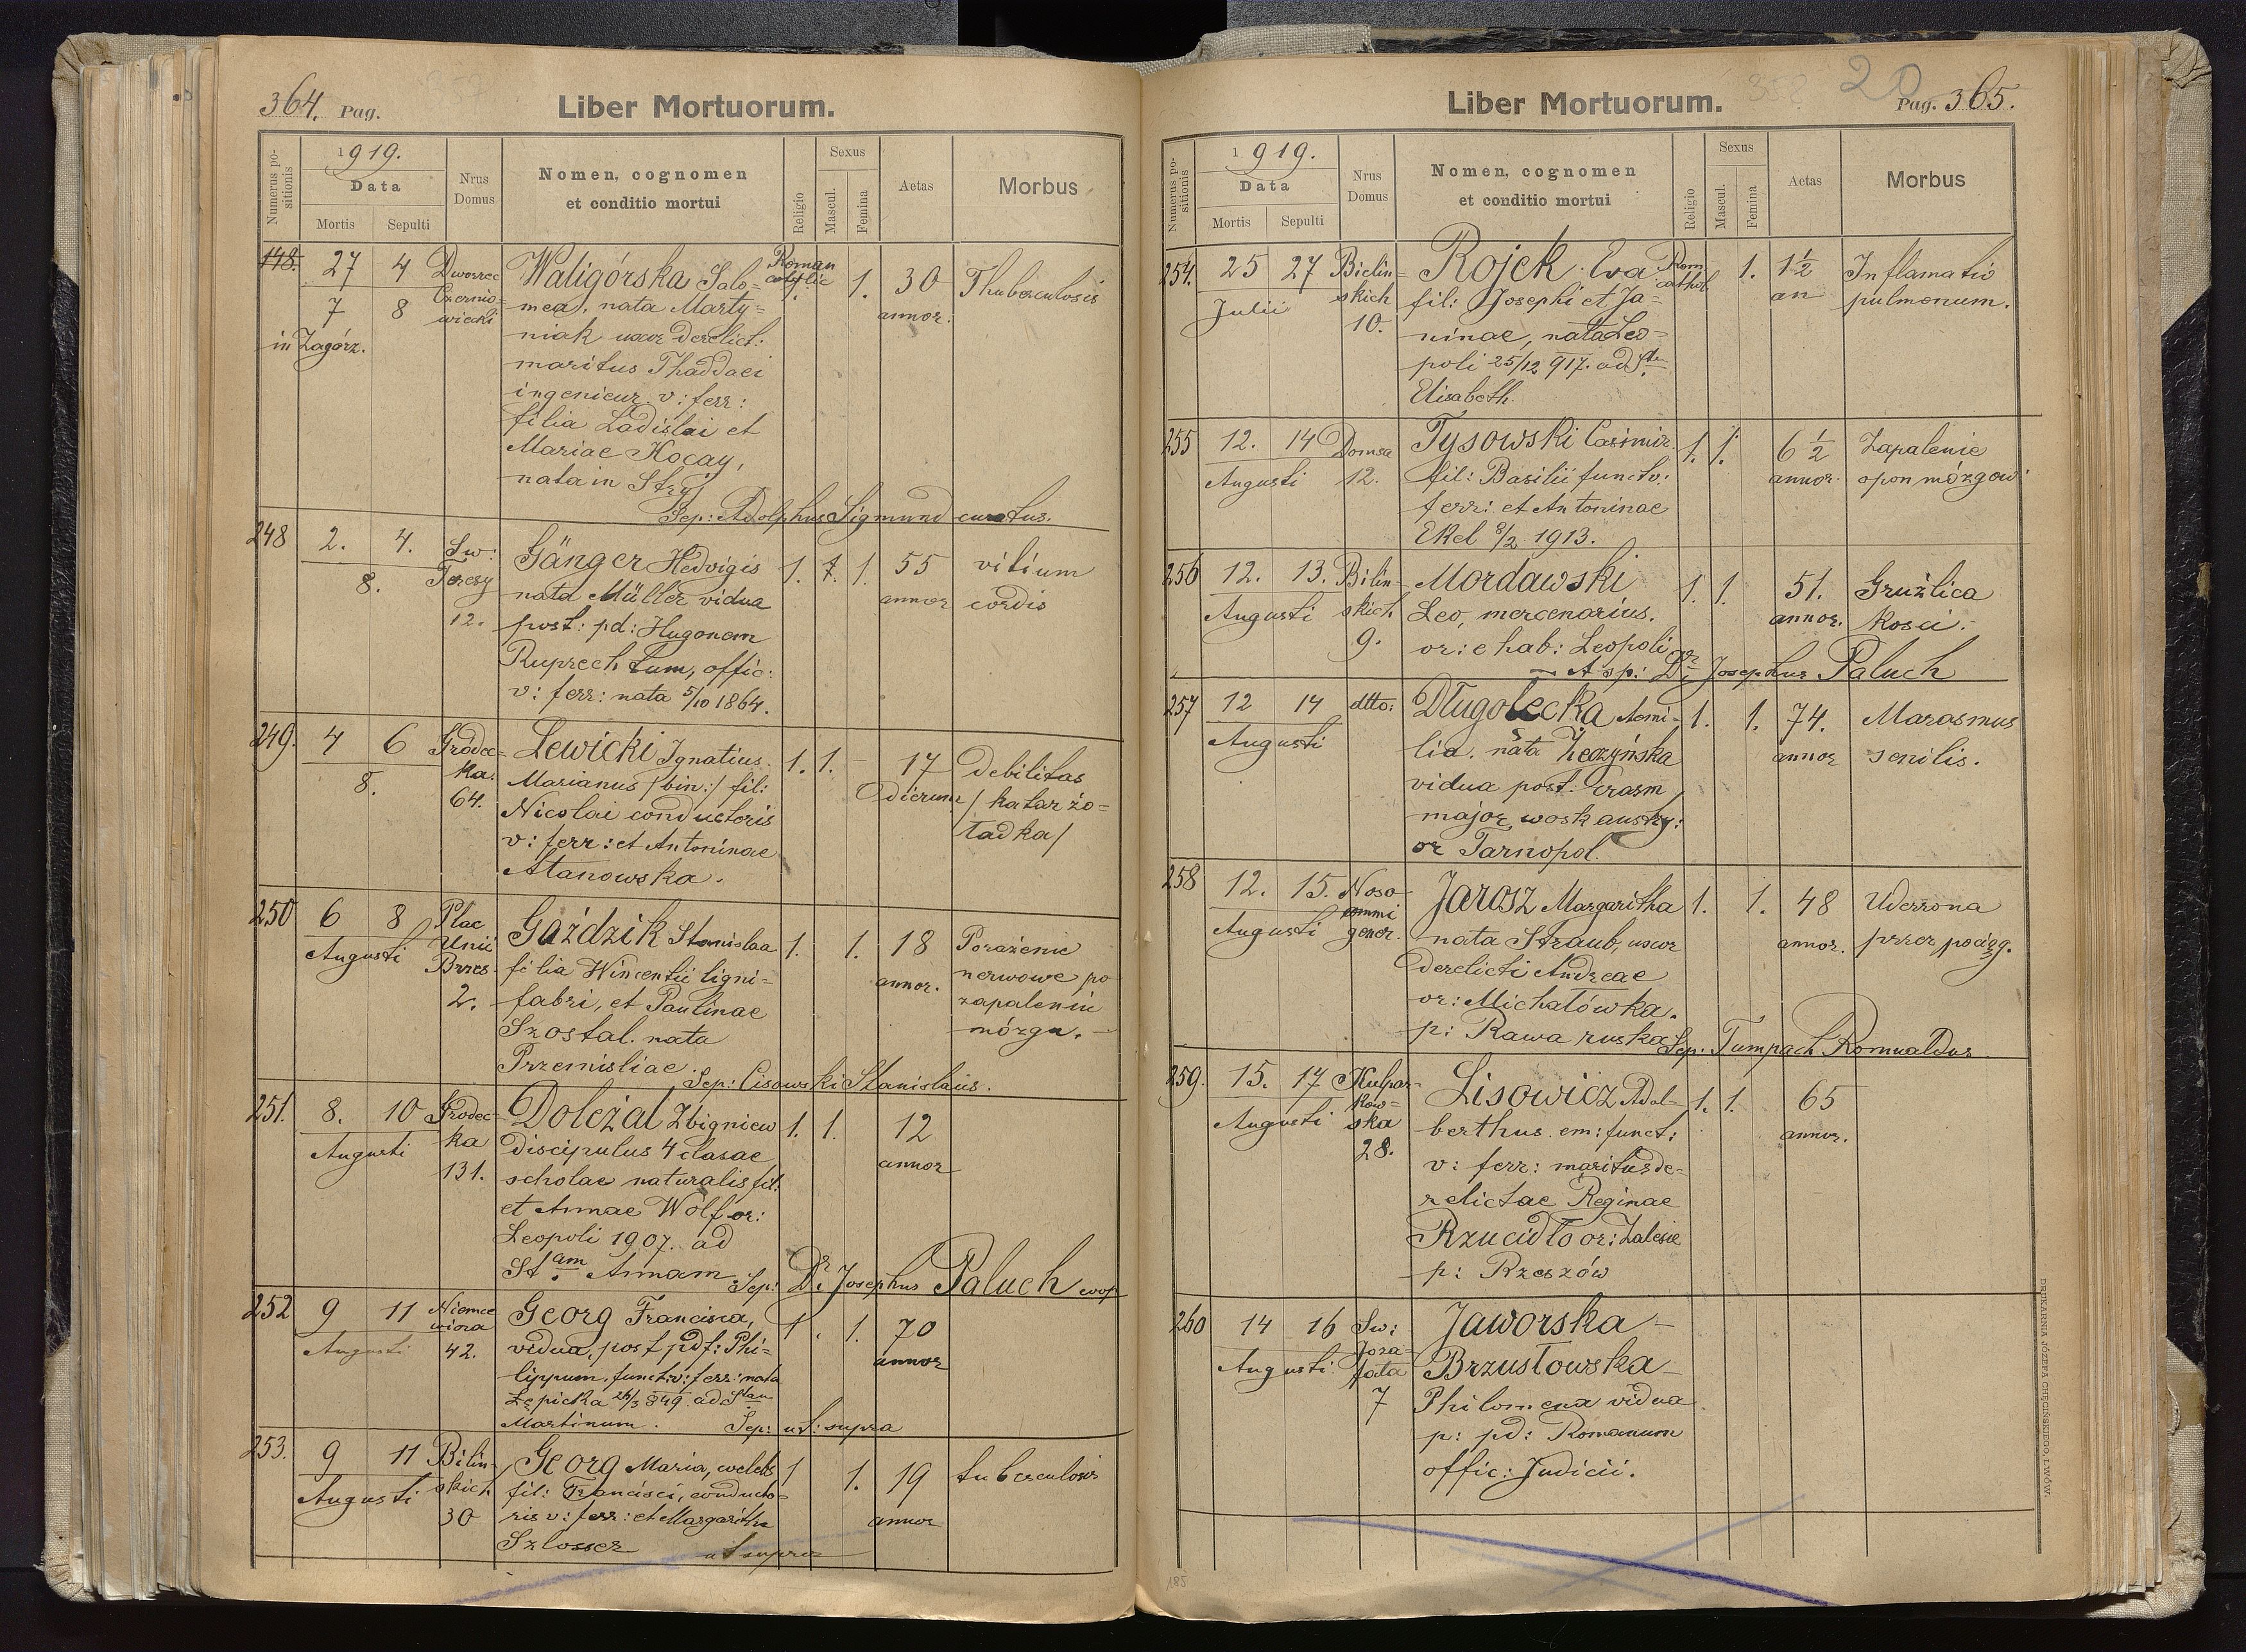 364. Pag.
Liber Mortuorum.
Numerus positionis
1919.
Data
Mortis Sepulti
Nrus Domus
Nomen, cognomen
et conditio mortui
Religio
Sexus
Mascul.
Femina
Aetas
Morbus
148. 27 4 Dworzec Waligórska Salo= Roman 1. 30 Thuberculosis
7 8 Czernio= mea, nata Marty= cathplic annor.
in Zagórz. wiecki niak uxor derelict:
maritus Thaddaei
ingenieur. v: ferr:
filia Ladislai et
Mariae Kocay,
nata in Stryj
Sep: Adolphus Sigmund curatus.
248 2. 4. Sw: Gänger Hedvigis 1. 1. 55 vitium
8. Teresy nata Müller vidua annor cordis
12. post: pd: Hugonem
Ruprechtum, offic:
v: ferr: nata 5/10 1864.
249. 4 6 Gródec= Lewicki Ignatius 1. 1. 17 Debilitas
8. ka. Marianus /bin:/ fil: dierum /katar żo=
64. Nicolai conductoris łądka/
v: ferr: et Antoninae
Stanowska.
250 6 8 Plac Gaździk Stanislaa 1. 1. 18 Porażenie
Augusti Unii filia Wincentii ligni= annor. nerwowe po
Brzes. fabri, et Paulinae zapaleniu
2. Szostal. nata mózgu.
Przemisliae. Sep: Cisowski Stanislaus.
251. 8. 10 Grodec- Doleżal Zbigniew 1. 1. 12
Augusti ka Discipulus 4 clasae annor
131. scholae naturalis fil:
et Annae Wolf or:
Leopoli 1907. ad
Stam Annam. Sep: Dr Josephus Paluch coop
252 9 11 Niemce Georg Francisca, 1. 1. 70
Augusti wicza vidua, post pdf: Phi= annor
42. lippum. funct: v: ferr: nata
Łepicka 26/3 849. ad Stan
Martinum. Sep: ut: supra
253. 9 11 Bilin- Georg Maria, coelebs 1 1. 19 tuberculosis
Augusti skich fil: Francisci, conducto= annor
30 ris v: ferr: et Margarithe
Szlosser ut supra
Liber Mortuorum.
358
20
Pag. 365.
Numerus positionis
1919.
Data
Mortis Sepulti
Nrus Domus
Nomen, cognomen
et conditio mortui
Religio
Sexus
Mascul.
Femina
Aetas
Morbus
254. 25 27 Bielin= Rojek Eva Rom 1. 1½ Inflamatio
Julii skich fil: Josephi et Ja= cathol. an pulmonum.
10. ninae, nata Leo=
poli 25/12 917. ad Stn
Elisabeth.
255 12. 14 Domsa Tysowski Casimir 1. 1. 6½ Zapalenie
Augusti 12. fil: Basilii functv: annor. opon mózgow:
ferr: et Antoninae
Ekel 8/2 1913.
256 12. 13. Bilin- Mordawski 1. 1. 51. Gruźlica
Augusti skich Leo, mercenarius. annor. kosci.
9. or: e hab: Leopoli
A sp: Dr Josephus Paluch
257 12 14 dtto: Długolecka Aemi- 1. 1. 74. Marasmus
Augusti lia. nata annor senilis.
vidua post. Erasm
major, wosk austry:
or Tarnopol.
258 12. 15. Noso Jarosz Margaritha 1. 1. 48 Uderzona
Augusti commi gener. nata Straub, uxor annor. przez pociąg.
derelicti Andreae
or: Michałówka.
p: Rawa ruska Sep: Tumpach Romualdus
259. 15. 17 Kulpar- Lisowicz Adal- 1. 1. 65
Augusti kow= berthus em: funct: annor.
ska v: ferr: maritus de-
28. relictae Reginae
Rzucidło or: Zalesie
p: Rzeszów
260 14 16 Sw: Jaworska -
Augusti Joza- Brzustowska -
fata Philomena vidua
7 p: pd: Romanum
offic: Judicii.
185
DRUKARNIA JÓZEFA CHĘCIŃSKIEGO, LWÓW.